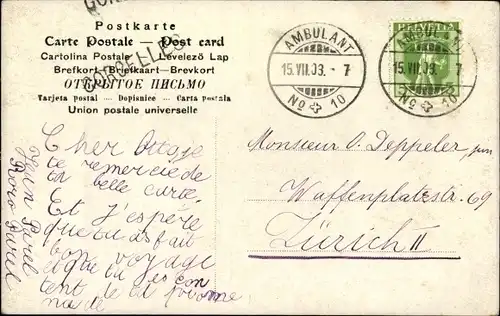 CORCELLES
Postkarte
Carte Postale — Post card
Cartolina Postale — Levelező Lap
Brefkort — Briefkaart — Brevkort
ОТКРЫТОЕ ПИСЬМО
Tarjeta postal — Dopisnice — Carta postala
Union postale universelle
AMBULANT
15.VII.09. - 7
No 10
HELVETIA
AMBULANT
15.VII.09. - 7
No 10
Cher
te remercie de
ta belle carte.
Et J'espere
que tu as fait
bon voyage
et que tu es con
tent de ta
Monsieur O. Deppeler, jun
Waffenplatzstr. 69
Zürich II